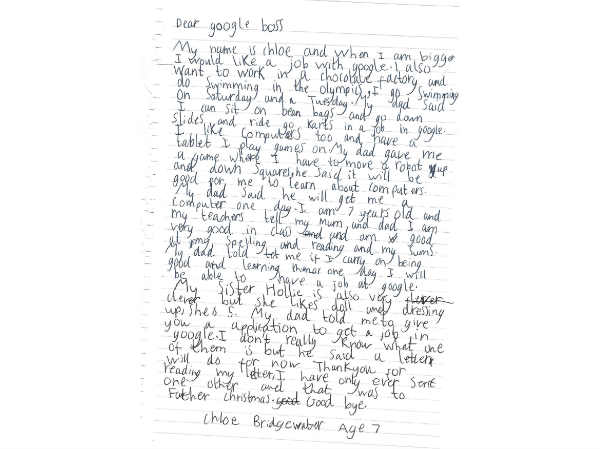 Dear google boss
My name is chloe and when I am bigger
I would like a job with google. I also
want to work in a chocolate factory and
do swimming in the olympics, I go swimming
on Saturday and a Tuesday. My dad said
I can sit on bean bags and go down
slides and ride go karts in a job in google.
I like computers too and have a
tablet I play games on. My dad gave me
a game where I have to move a robot up
and down squares, he said it will be
good for me to learn about computers.
My dad said he will get me a
computer one day. I am 7 years old and
my teachers tell my mum and dad I am
very good in class and am good
at my spelling and reading and my sums.
My dad told me if I carry on being
good and learning then one day I will
be able to have a job at google.
My sister Hollie is also very
clever but she likes doll and dressing
up, she's 5. My dad told me to give
you a application to get a job in
google. I don't really know what one
of them is but he said a letter
will do for now. Thankyou for
reading my letter, I have only ever sent
one other and that was to
Father christmas. Good bye.
Chloe Bridgewater Age 7